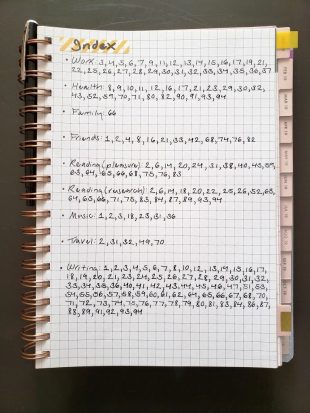 Index
• Work: 3,4,5,6,7,9,11,12,13,14,15,16,17,19,21,
22,25,26,27,28,29,30,31,32,33,34,35,36,37
• Health: 8,9,10,11,12,16,17,21,23,29,30,32,
43,52,57,70,71,80,82,90,91,93,94
• Family: 66
• Friends: 1,2,4,8,16,21,33,42,68,74,76,82
• Reading (pleasure): 2,6,14,20,24,31,38,40,45,57,
63,64,65,66,68,75,76,83
• Reading (research): 2,6,14,18,20,22,25,26,52,63,
64,65,66,71,75,83,84,87,89,93,94
• Music: 1,2,3,18,23,31,36
• Travel: 2,31,32,49,70
• Writing: 1,2,3,4,5,6,7,8,10,12,13,14,15,16,17,
18,19,20,21,23,24,25,26,27,28,29,30,31,32,
33,34,35,36,40,41,42,43,44,45,46,47,51,53,
54,55,56,57,58,59,60,61,62,64,65,66,67,68,70,
71,72,73,74,75,76,77,78,79,80,81,83,84,86,87,
88,89,91,92,93,94